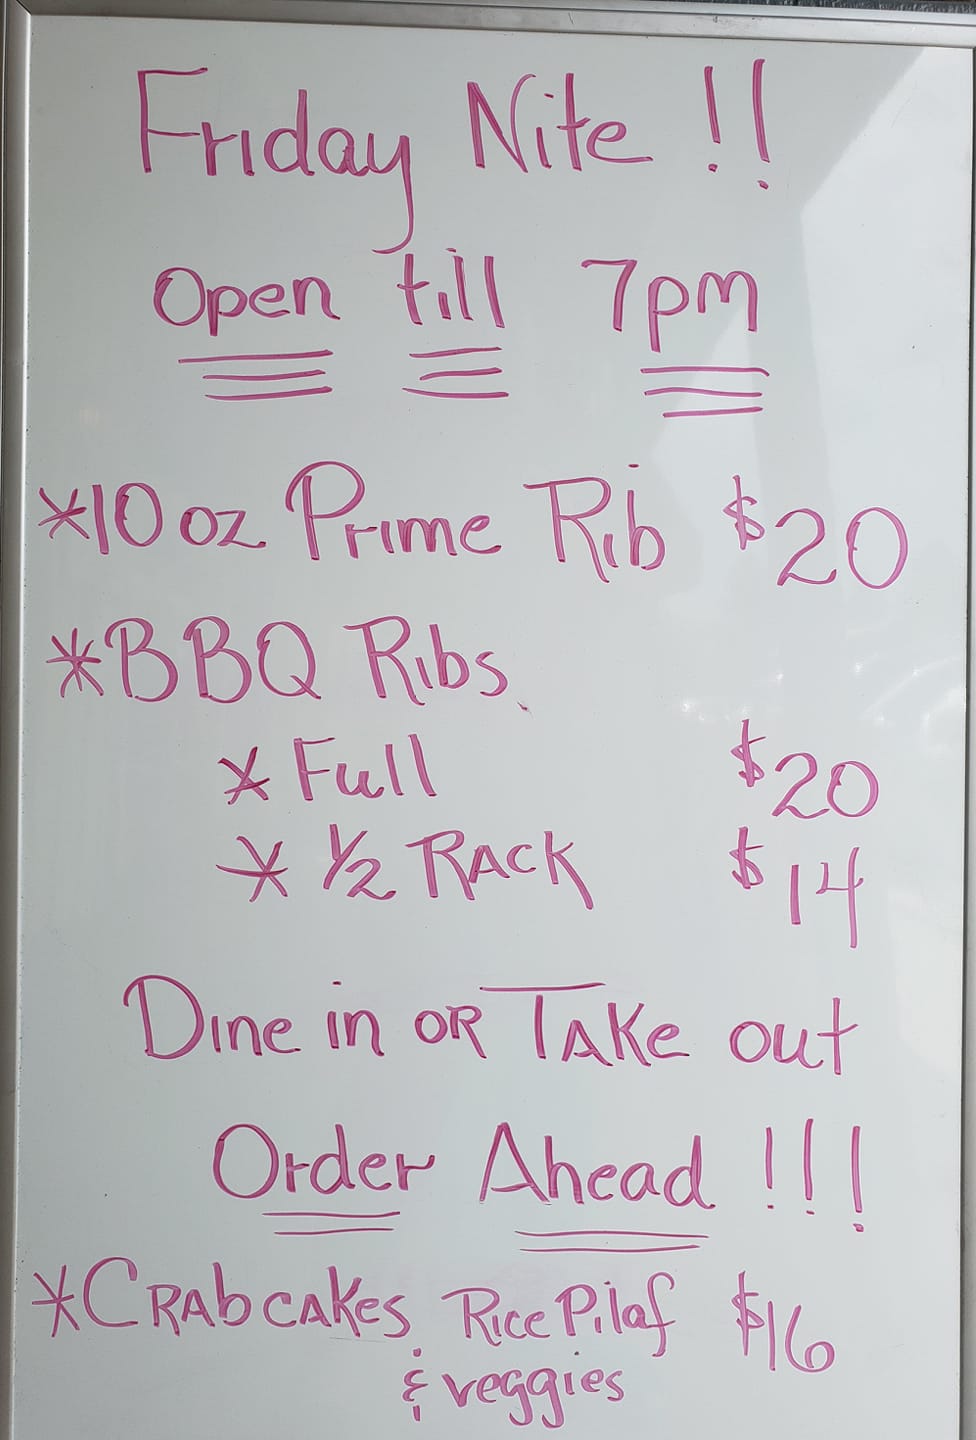 Friday Nite !!
Open till 7pm
*10 oz Prime Rib $20
*BBQ Ribs
* Full $20
* 1/2 RACK $14
Dine in OR TAKe out
Order Ahead !!!
*CRAbcAkes Rice Pilaf $16
& veggies